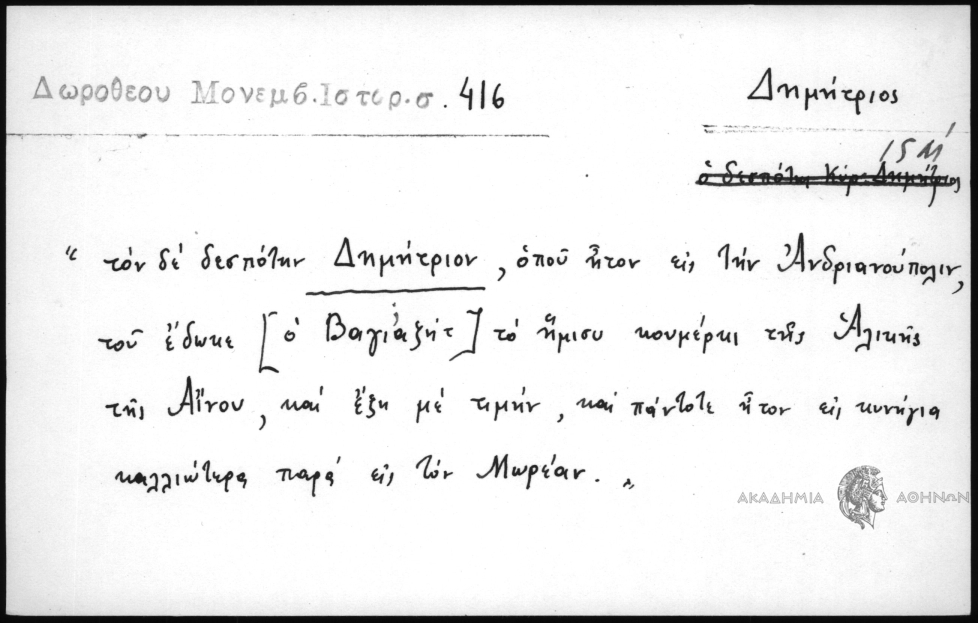 Δωροθεου Μονεμβ.Ιστορ.σ. 416
Δημήτριος
ὁ δεσπότης Κύρ Δημήτριος
“ τόν δέ δεσπότην Δημήτριον, ὁποῦ ἦτον εἰς τήν Ἀνδριανούπολιν,
τοῦ ἔδωκε [ὁ Βαγιαζήτ] τό ἥμισυ κουμέρκι τῆς Ἁλικῆς
τῆς Αἴνου, καί ἔζη μέ τιμήν, καί πάντοτε ἦτον εἰς κυνήγια
καλλιώτερα παρά εἰς τόν Μωρέαν. „
ΑΚΑΔΗΜΙΑ ΑΘΗΝΩΝ